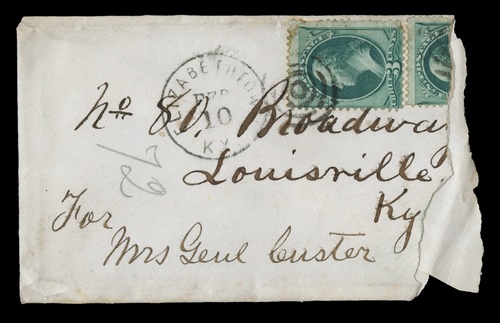 ELIZABETHTOWN
FEB
10
KY
No 80, Broadway
Louisville
Ky
72
For
Mrs Genl Custer